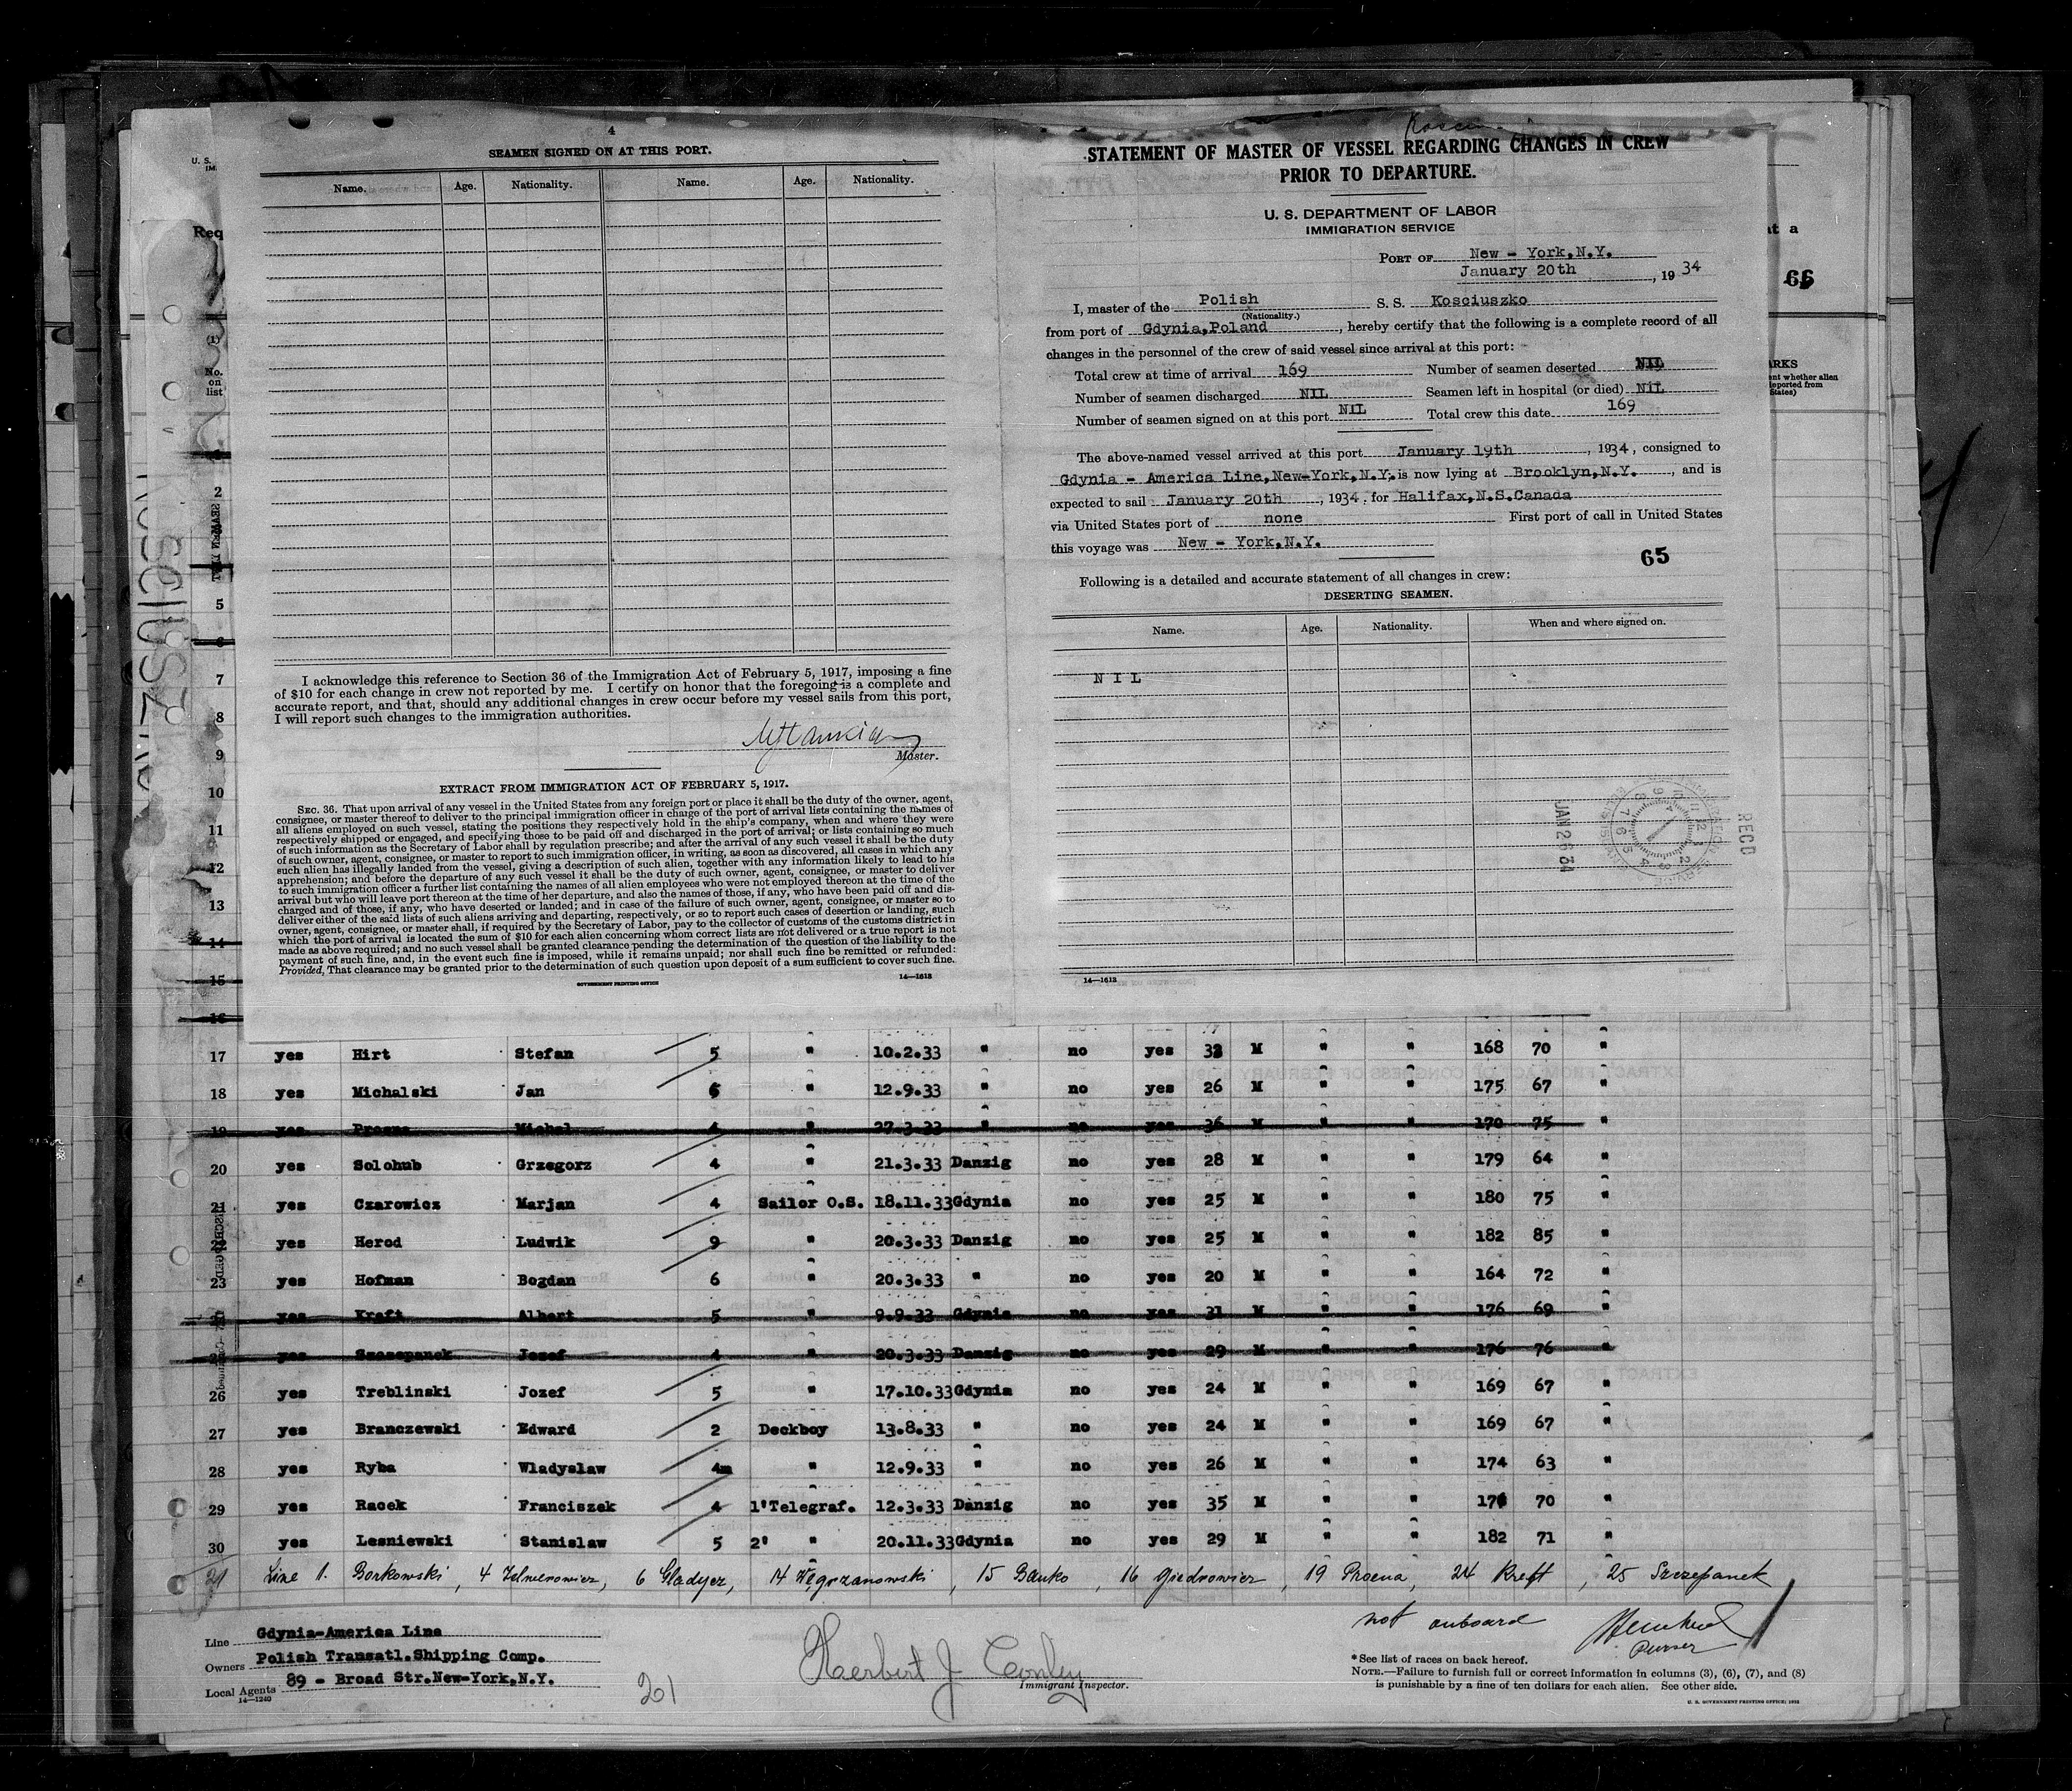 4
SEAMEN SIGNED ON AT THIS PORT.
Name. Age. Nationality. Name. Age. Nationality.
I acknowledge this reference to Section 36 of the Immigration Act of February 5, 1917, imposing a fine
of $10 for each change in crew not reported by me. I certify on honor that the foregoing is a complete and
accurate report, and that, should any additional changes in crew occur before my vessel sails from this port,
I will report such changes to the immigration authorities.
Master.
EXTRACT FROM IMMIGRATION ACT OF FEBRUARY 5, 1917.
SEC. 36. That upon arrival of any vessel in the United States from any foreign port or place it shall be the duty of the owner, agent,
consignee, or master thereof to deliver to the principal immigration officer in charge of the port of arrival lists containing the names of
all aliens employed on such vessel, stating the positions they respectively hold in the ship's company, when and where they were
respectively shipped or engaged, and specifying those to be paid off and discharged in the port of arrival; or lists containing so much
of such information as the Secretary of Labor shall by regulation prescribe; and after the arrival of any such vessel it shall be the duty
of such owner, agent, consignee, or master to report to such immigration officer, in writing, as soon as discovered, all cases in which any
such alien has illegally landed from the vessel, giving a description of such alien, together with any information likely to lead to his
apprehension; and before the departure of any such vessel it shall be the duty of such owner, agent, consignee, or master to deliver
to such immigration officer a further list containing the names of all alien employees who were not employed thereon at the time of the
arrival but who will leave port thereon at the time of her departure, and also the names of those, if any, who have been paid off and dis-
charged and of those, if any, who have deserted or landed; and in case of the failure of such owner, agent, consignee, or master so to
deliver either of the said lists of such aliens arriving and departing, respectively, or so to report such cases of desertion or landing, such
owner, agent, consignee, or master shall, if required by the Secretary of Labor, pay to the collector of customs of the customs district in
which the port of arrival is located the sum of $10 for each alien concerning whom correct lists are not delivered or a true report is not
made as above required; and no such vessel shall be granted clearance pending the determination of the question of the liability to the
payment of such fine, and, in the event such fine is imposed, while it remains unpaid; nor shall such fine be remitted or refunded:
Provided, That clearance may be granted prior to the determination of such question upon deposit of a sum sufficient to cover such fine.
14—1613
GOVERNMENT PRINTING OFFICE
STATEMENT OF MASTER OF VESSEL REGARDING CHANGES IN CREW
PRIOR TO DEPARTURE.
U. S. DEPARTMENT OF LABOR
IMMIGRATION SERVICE
PORT OF New - York,N.Y.
January 20th, 1934
I, master of the Polish S. S. Kosciuszko
(Nationality.)
from port of Gdynia,Poland, hereby certify that the following is a complete record of all
changes in the personnel of the crew of said vessel since arrival at this port:
Total crew at time of arrival 169 Number of seamen deserted NIL
Number of seamen discharged NIL Seamen left in hospital (or died) NIL
Number of seamen signed on at this port NIL Total crew this date 169
The above-named vessel arrived at this port January 19th, 1934, consigned to
Gdynia - America Line,New-York,N.Y; is now lying at Brooklyn,N.Y., and is
expected to sail January 20th, 1934, for Halifax,N.S.Canada
via United States port of none First port of call in United States
this voyage was New - York,N.Y.
65
Following is a detailed and accurate statement of all changes in crew:
DESERTING SEAMEN.
Name. Age. Nationality. When and where signed on.
N I L
JAN 26 34
RECD
14—1613
U. S.
Req
No.
on
list
at a
66
2
5
7
8
9
10
11
12
13
14
15
16
17 yes Hirt Stefan 5 " 10.2.33 " no yes 33 M " " 168 70 "
18 yes Michalski Jan 6 " 12.9.33 " no yes 26 M " " 175 67 "
19 yes Proena Michal 4 " 27.3.33 " no yes 36 M " " 170 75 "
20 yes Solohub Grzegorz 4 " 21.3.33 Danzig no yes 28 M " " 179 64 "
21 yes Czarowicz Marjan 4 Sailor O.S. 18.11.33 Gdynia no yes 25 M " " 180 75 "
22 yes Herod Ludwik 9 " 20.3.33 Danzig no yes 25 M " " 182 85 "
23 yes Hofman Bogdan 6 " 20.3.33 " no yes 20 M " " 164 72 "
24 yes Kreft Albert 5 " 9.9.33 Gdynia no yes 31 M " " 176 69 "
25 yes Szczepanek Jozef 4 " 20.3.33 Danzig no yes 29 M " " 176 76 "
26 yes Treblinski Jozef 5 " 17.10.33 Gdynia no yes 24 M " " 169 67 "
27 yes Branczewski Edward 2 Deckboy 13.8.33 " no yes 24 M " " 169 67 "
28 yes Ryba Wladyslaw 4m " 12.9.33 " no yes 26 M " " 174 63 "
29 yes Racek Franciszek 4 1'Telegraf. 12.3.33 Danzig no yes 35 M " " 70 "
30 yes Lesniewski Stanislaw 5 2' " 20.11.33 Gdynia no yes 29 M " " 182 71 "
21 Line 1. Borkowski, 4 , 6 Gladycz, 14 Węgrzanowski, 15 Banko, 16 Giedrowicz, 19 Proena, 24 Kreft, 25 Szczepanek
not onboard
Purser
Line Gdynia-America Line
Owners Polish Transatl.Shipping Comp.
Local Agents 89 - Broad Str.New-York,N.Y.
14—1240
21
Herbert J Conley
Immigrant Inspector.
*See list of races on back hereof.
NOTE.—Failure to furnish full or correct information in columns (3), (6), (7), and (8)
is punishable by a fine of ten dollars for each alien. See other side.
U. S. GOVERNMENT PRINTING OFFICE: 1932